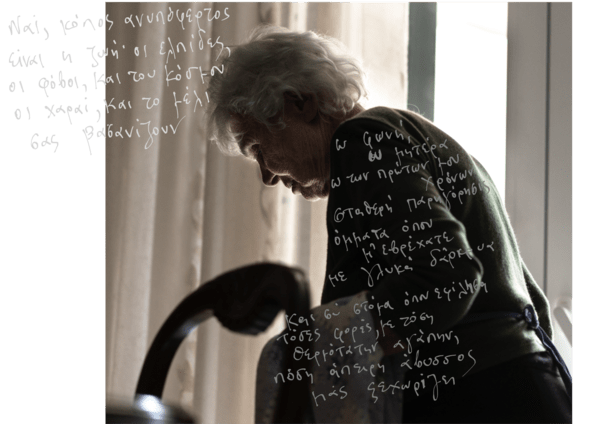 Ναι, κόπος ανυπόφερτος
είναι η ζωή· οι ελπίδες,
οι φόβοι, και του κόσμου
οι χαραί, και το μέλι
σας βασανίζουν
ω φωνή,
ω μητέρα
ω των πρώτων μου
χρόνων
σταθερή παρηγόρησις
όμματα όπου
μ' εβρέχατε
με γλυκά δάκρυα
Και συ στόμα όπου εφίλησα
τόσες φορές, με τόση
θερμότατην αγάπην,
πόση άπειρη άβυσσος
μας ξεχωρίζει